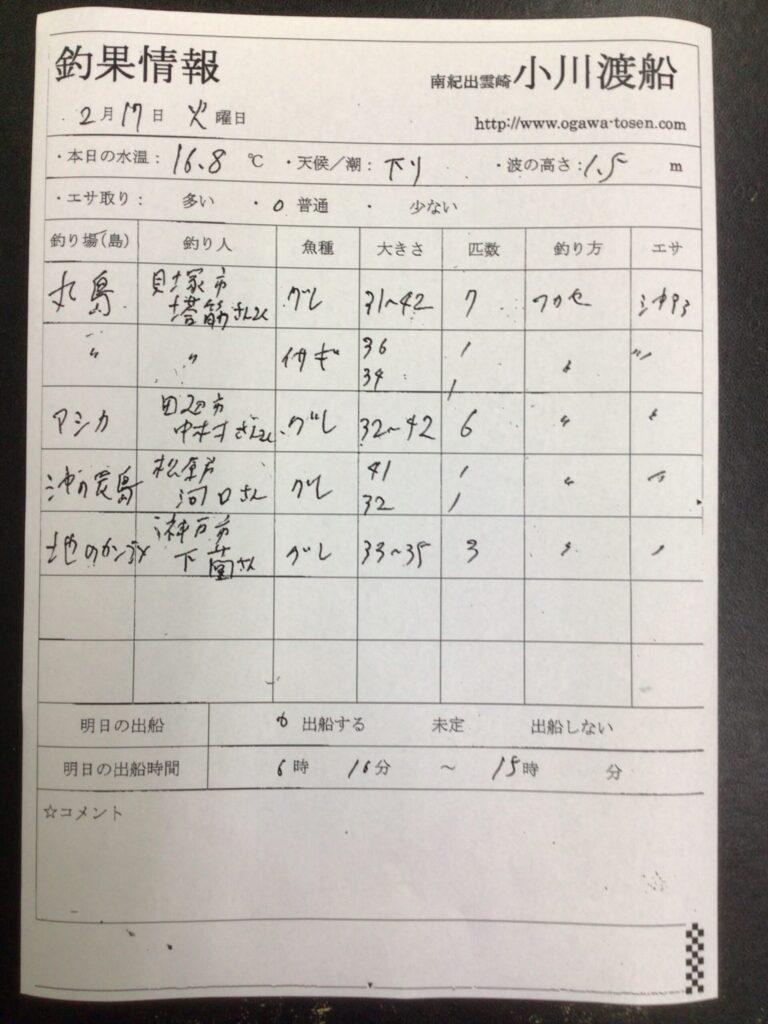 釣果情報
南紀出雲崎 小川渡船
2月17日 火曜日
http://www.ogawa-tosen.com
・本日の水温：16.8 ℃ ・天候／潮：下り ・波の高さ：1.5 m
・エサ取り： 多い ・0 普通 ・ 少ない
釣り場(島) 釣り人 魚種 大きさ 匹数 釣り方 エサ
丸島 貝塚市 グレ 31〜42 7 フカセ
塔筋さん
〃 〃 イサギ 36 1 〃 〃
34 1
アシカ 田辺市 グレ 32〜42 6 〃 〃
中村さん
沖の 島 グレ 41 1 〃 〃
河口さん 32 1
地の 神戸市 グレ 33〜35 3 〃 〃
下 さん
明日の出船 0 出船する 未定 出船しない
明日の出船時間 6時 16分 〜 15時 分
☆コメント